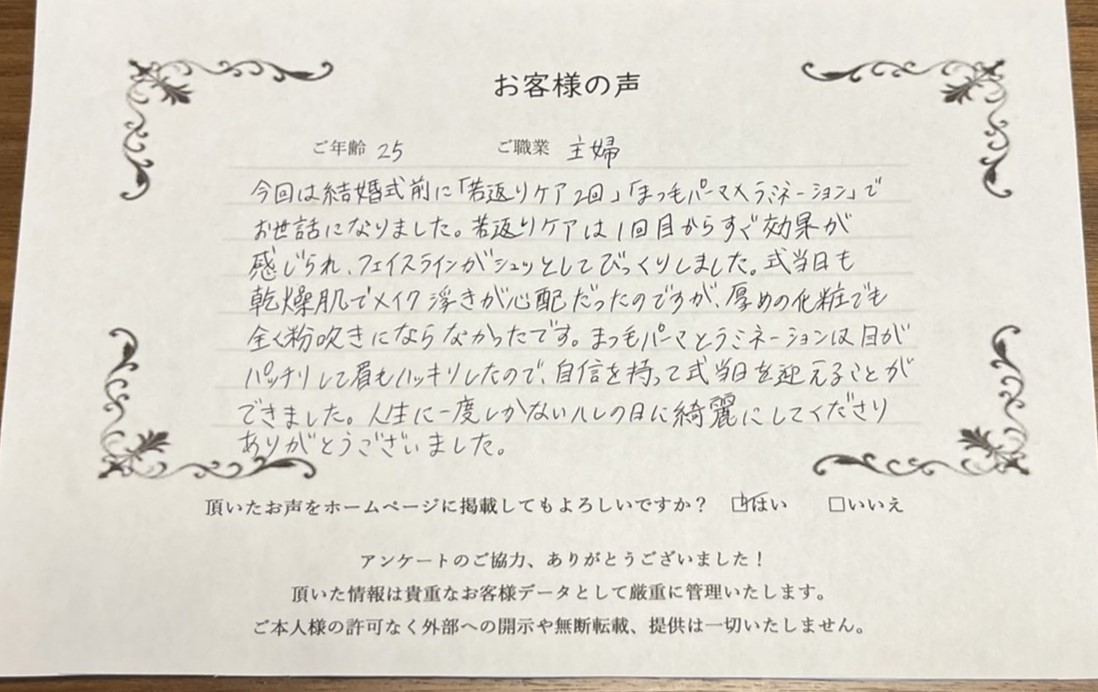 お客様の声
ご年齢 25 ご職業 主婦
今回は結婚式前に「若返りケア2回」「まつ毛パーマ×ラミネーション」で
お世話になりました。若返りケアは1回目からすぐ効果が
感じられ、フェイスラインがシュッとしてびっくりしました。式当日も
乾燥肌でメイク浮きが心配だったのですが、厚めの化粧でも
全く粉吹きにならなかったです。まつ毛パーマとラミネーションは目が
パッチリして眉もハッキリしたので、自信を持って式当日を迎えることが
できました。人生に一度しかないハレの日に綺麗にしてくださり
ありがとうございました。
頂いたお声をホームページに掲載してもよろしいですか? ☑はい □いいえ
アンケートのご協力、ありがとうございました!
頂いた情報は貴重なお客様データとして厳重に管理いたします。
ご本人様の許可なく外部への開示や無断転載、提供は一切いたしません。